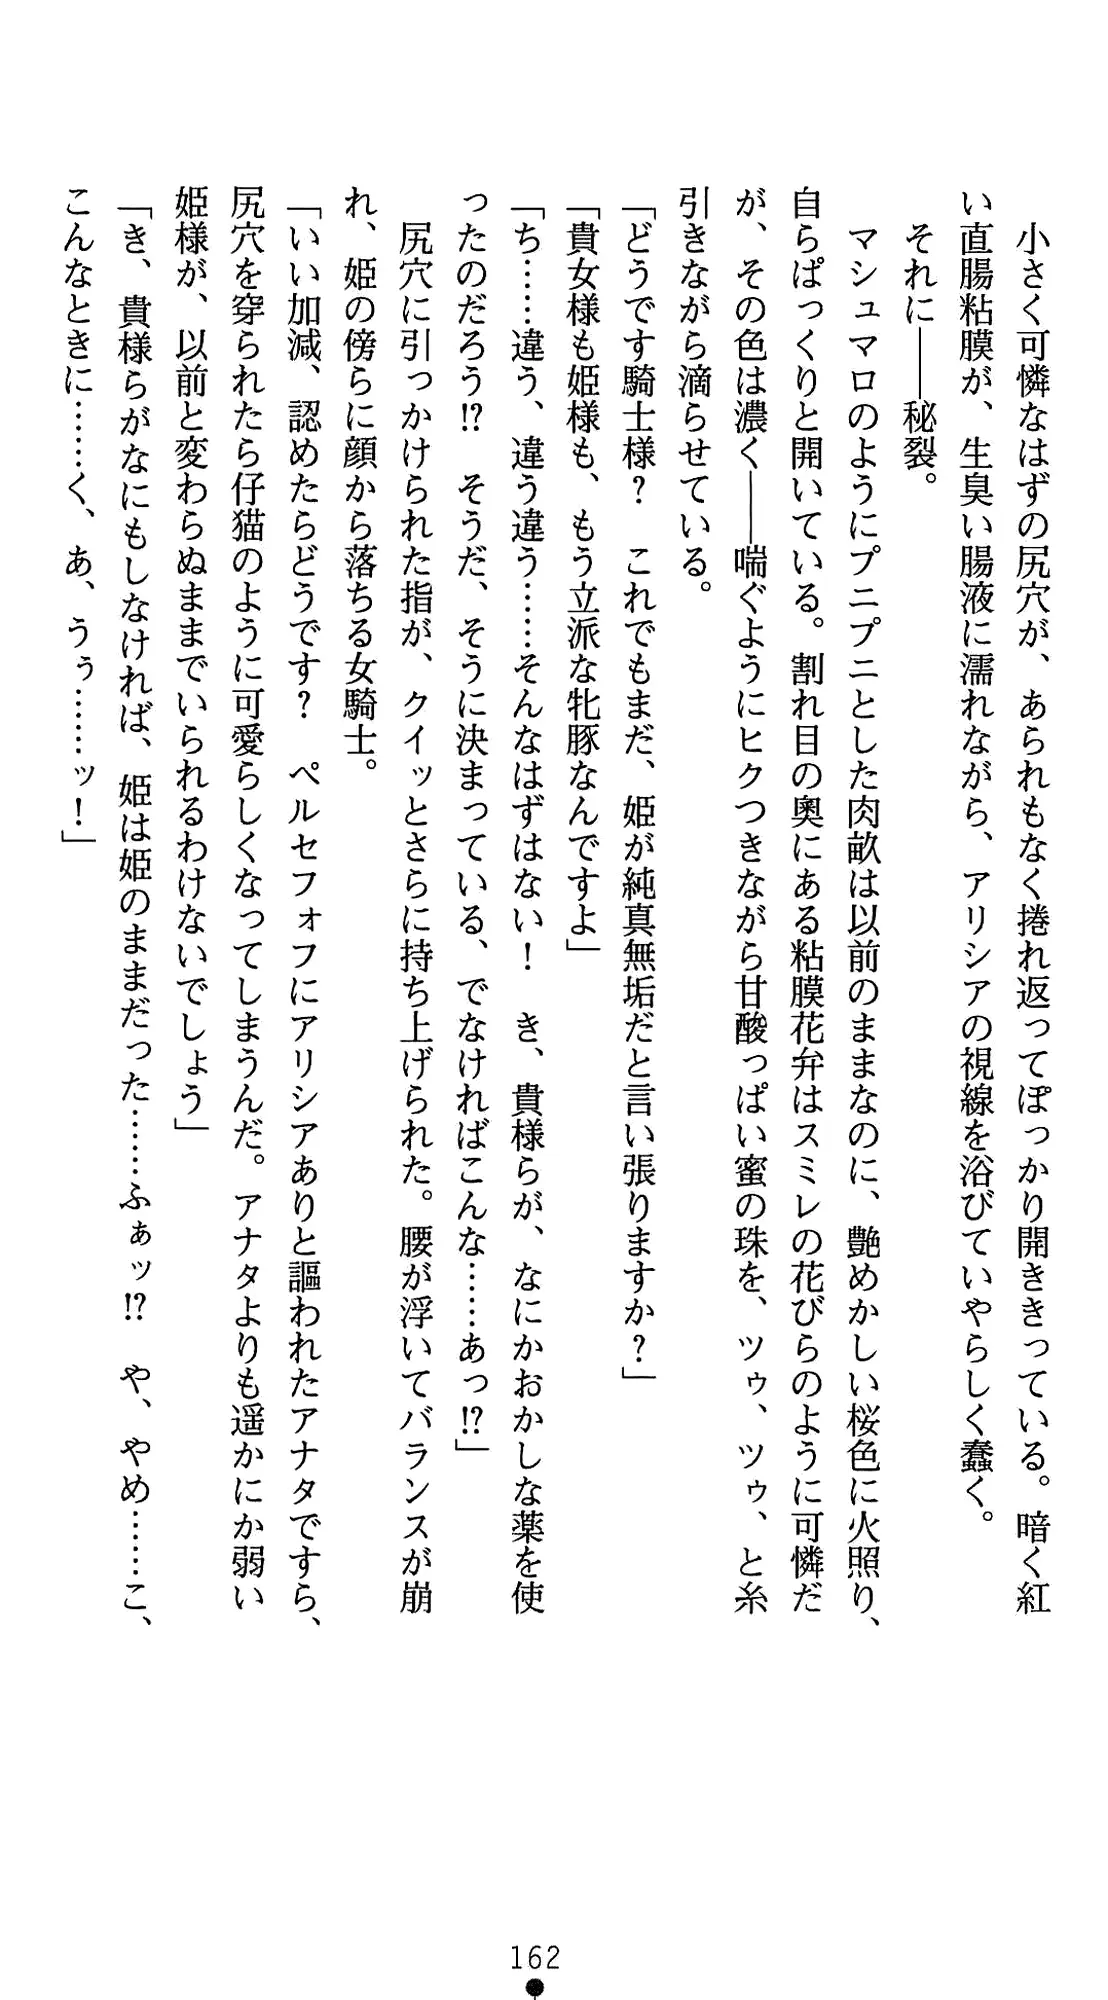 小さく可憐なはずの尻穴が、あられもなく捲れ返ってぽっかり開ききっている。暗く紅
い直腸粘膜が、生臭い腸液に濡れながら、アリシアの視線を浴びていやらしく蠢く。
それに――秘裂。
マシュマロのようにプニプニとした肉畝は以前のままなのに、艶めかしい桜色に火照り、
自らぱっくりと開いている。割れ目の奥にある粘膜花弁はスミレの花びらのように可憐だ
が、その色は濃く――喘ぐようにヒクつきながら甘酸っぱい蜜の珠を、ツゥ、ツゥ、と糸
引きながら滴らせている。
「どうです騎士様？　これでもまだ、姫が純真無垢だと言い張りますか？」
「貴女様も姫様も、もう立派な牝豚なんですよ」
「ち……違う、違う違う……そんなはずはない！　き、貴様らが、なにかおかしな薬を使
ったのだろう!?　そうだ、そうに決まっている、でなければこんな……あっ!?」
尻穴に引っかけられた指が、クイッとさらに持ち上げられた。腰が浮いてバランスが崩
れ、姫の傍らに顔から落ちる女騎士。
「いい加減、認めたらどうです？　ペルセフォフにアリシアありと謳われたアナタですら、
尻穴を穿られたら仔猫のように可愛らしくなってしまうんだ。アナタよりも遥かにか弱い
姫様が、以前と変わらぬままでいられるわけないでしょう」
「き、貴様らがなにもしなければ、姫は姫のままだった……ふぁッ!?　や、やめ……こ、
こんなときに……く、あ、うぅ……ッ！」
162